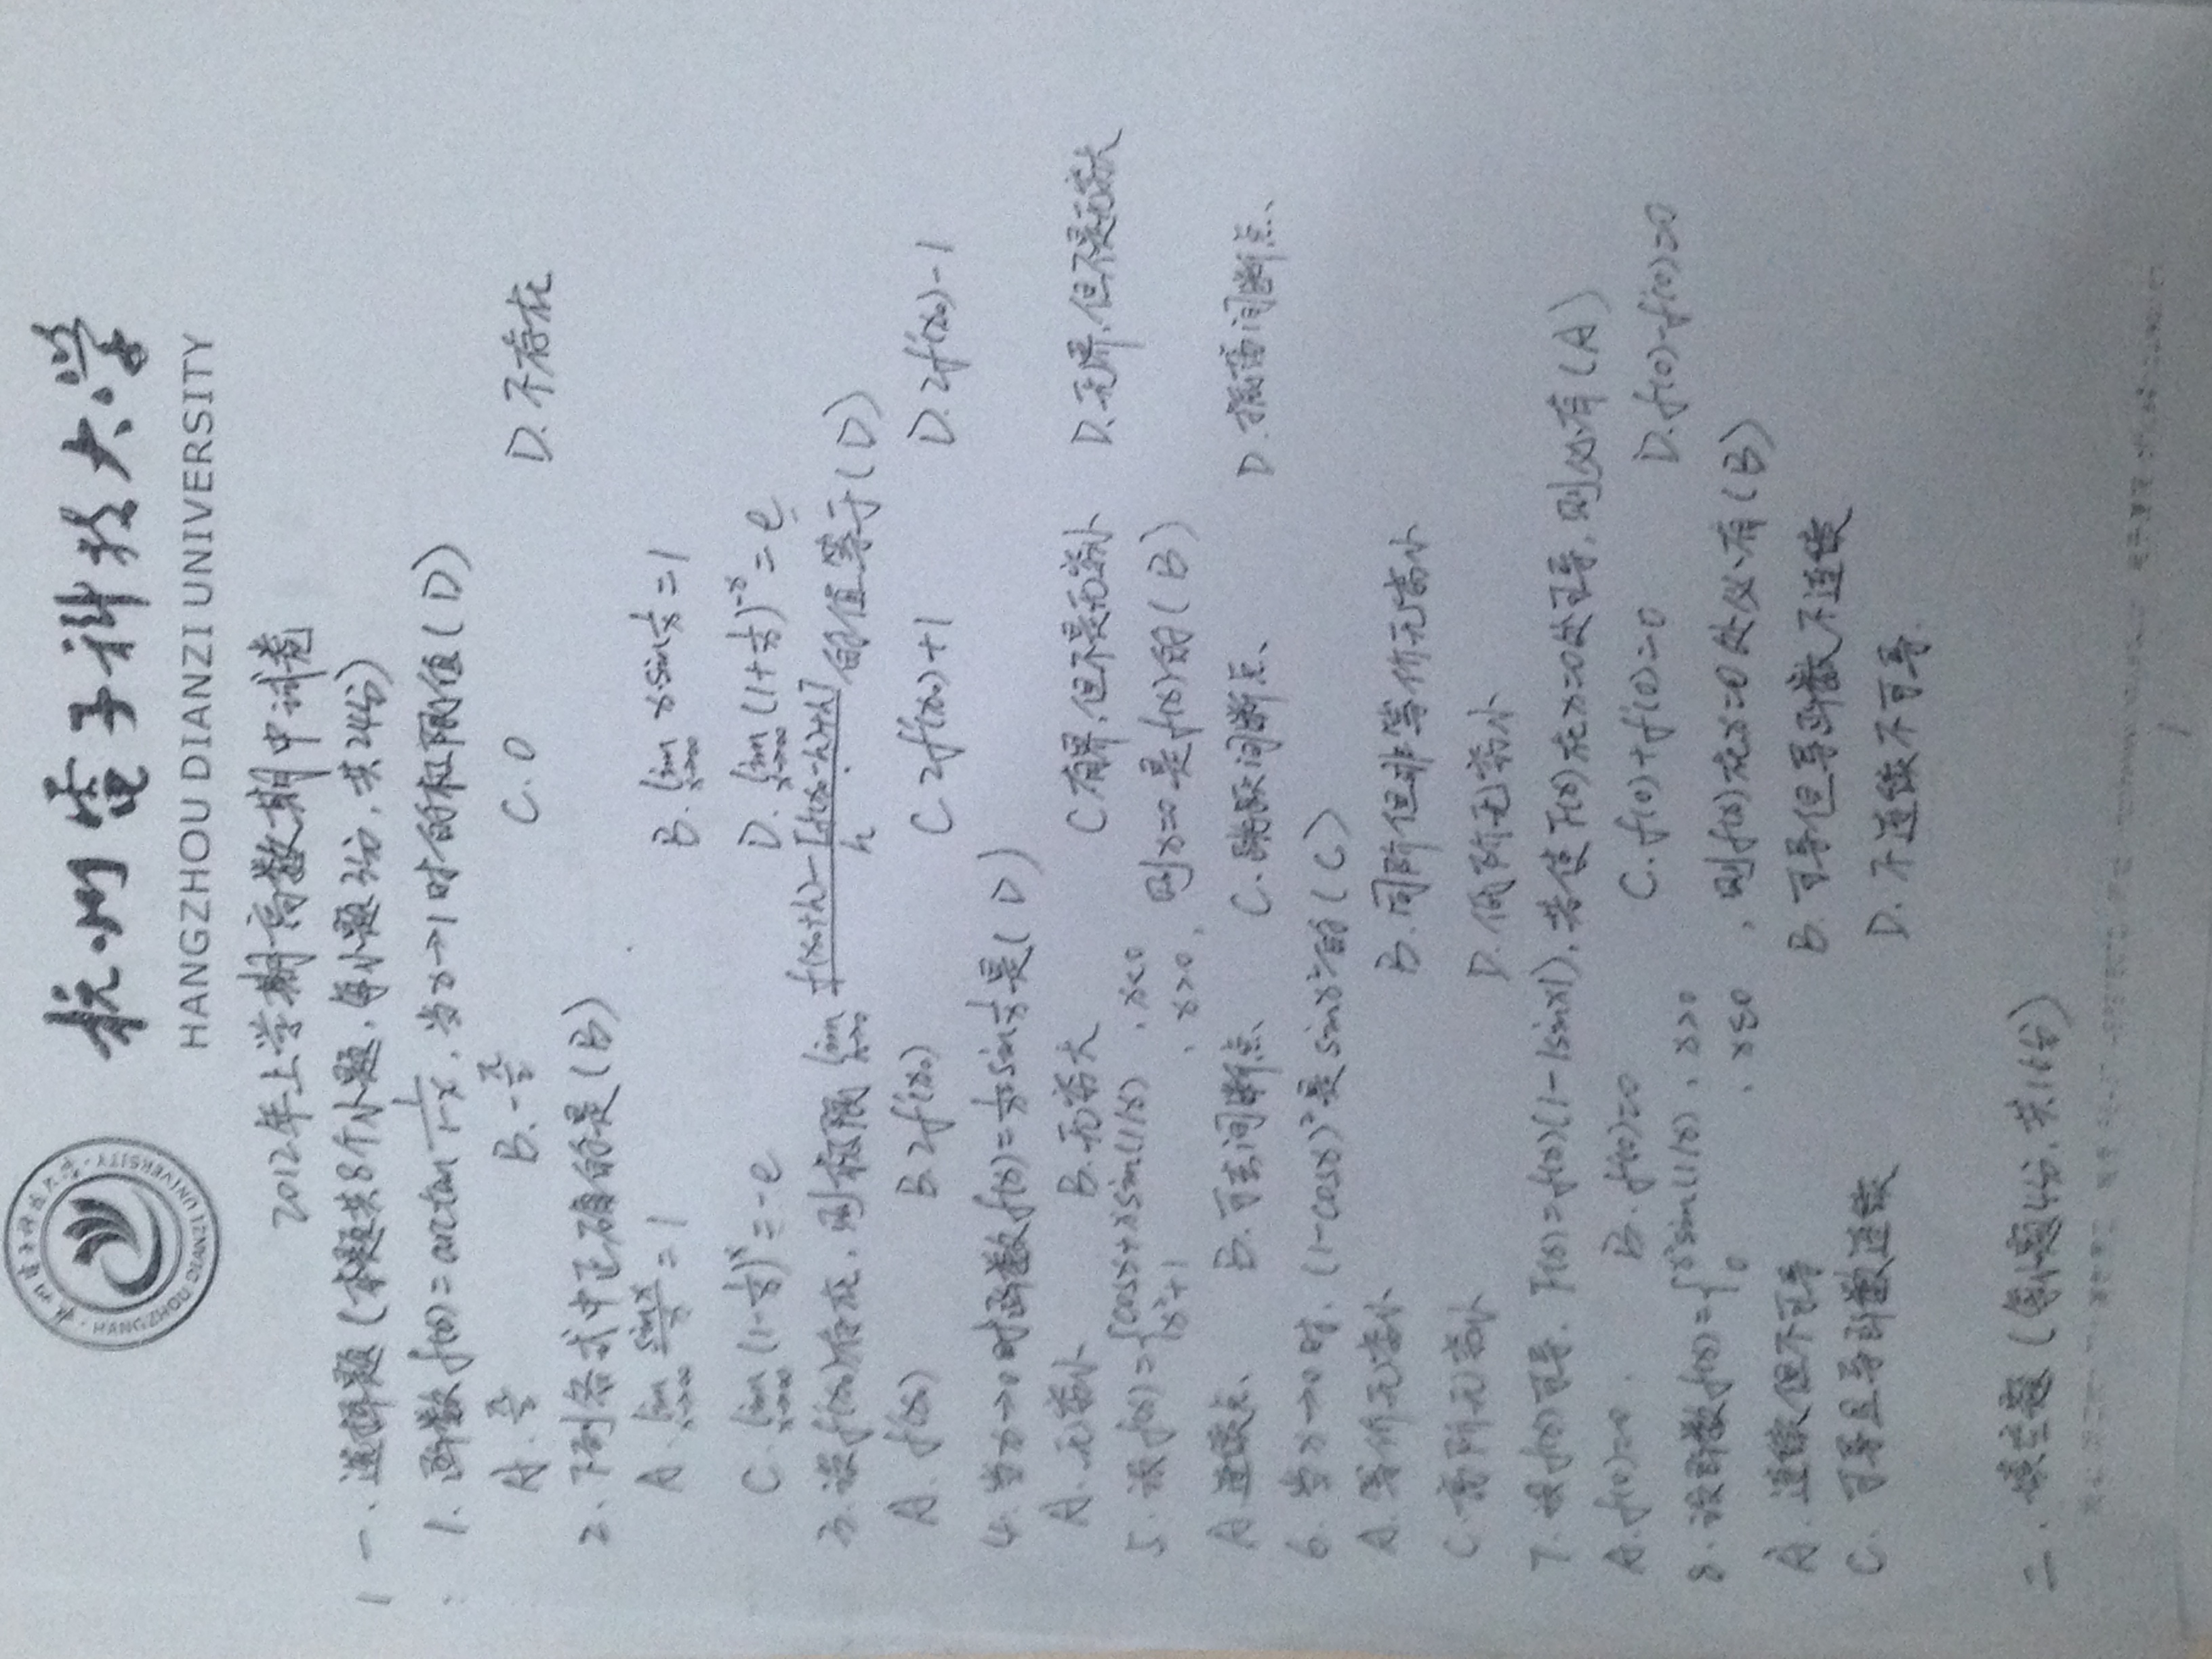 杭州电子科技大学·HANGZHOU DIANZI UNIVERSITY
杭州電子科技大学
HANGZHOU DIANZI UNIVERSITY
2012年上学期高数期中试卷
一、选择题(本题共8个小题,每小题3分,共24分)
1. 函数f(x)=arctan 1/(1-x),当x→1时的极限值(D)
A. π/2 B. -π/2 C. 0 D. 不存在
2、下列各式中正确的是(B)
A. lim x→∞ sinx/x = 1 B. lim x→∞ x·sin 1/x = 1
C. lim x→∞ (1-1/x)^x = -e D. lim x→∞ (1+1/x)^-x = e
3. 设f'(x₀)存在,则极限 lim h→0 (f(x₀+h)-[f(x₀-h)+h])/h 的值等于(D)
A. f'(x₀) B. 2f'(x₀) C 2f'(x₀)+1 D. 2f'(x₀)-1
4. 当x→0时函数f(x)=1/x² sin 1/x 是(D)
A. 无穷小 B. 无穷大 C 有界,但不是无穷小 D. 无界,但不是无穷大
5. 设f(x)={cosx+xsin(1/x) , x<0
x²+1 , x>0, 则x=0是f(x)的(B)
A 连续点、 B. 可去间断点、 C. 跳跃间断点、 D. 振荡间断点、
6. 当x→0时,(1-cosx)²是sinx²的(C)
A. 等价无穷小 B. 同阶但非等价无穷小
C. 高阶无穷小 D. 低阶无穷小
7. 设f(x)可导,F(x)=f(x)(1-|sinx|),若使F(x)在x=0处可导,则必有(A)
A. f(0)=0. B. f'(0)=0 C. f(0)+f'(0)=0 D. f(0)-f'(0)=0
8. 设函数f(x)={x²sin(1/x) , x>0
0 , x≤0 , 则f(x)在x=0处必有(B)
A. 连续但不可导 B. 可导但导函数不连续
C. 可导且导函数连续 D. 不连续不可导.
二. 填空题(每小题4分,共16分)
1